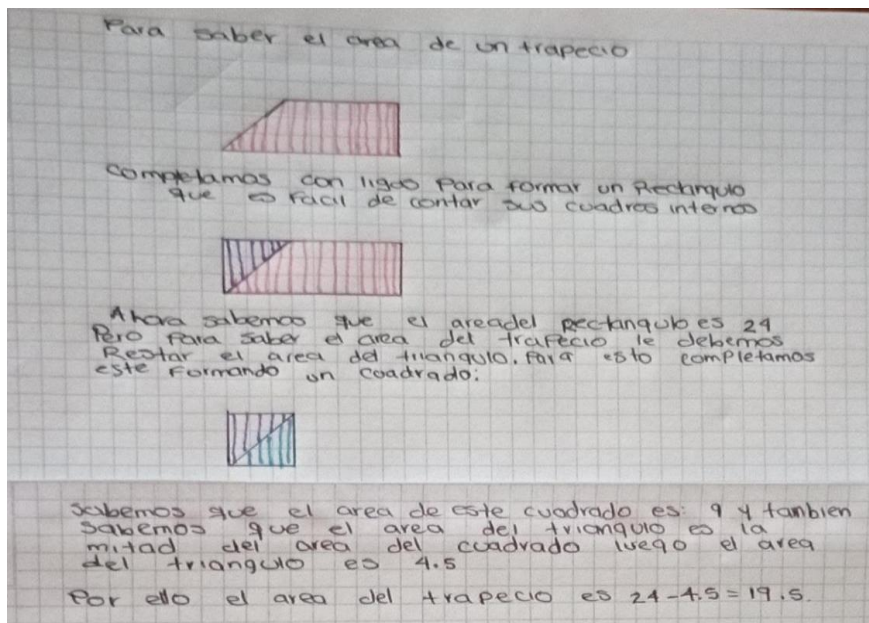 Para saber el area de un trapecio
completamos con ligas Para formar un Rectangulo
que es facil de contar sus cuadros internos
Ahora sabemos que el areadel rectangulo es 24
Pero Para saber el area del trapecio le debemos
Restar el area del triangulo. Para esto completamos
este Formando un coadrado:
sabemos que el area de este cuadrado es: 9 y tanbien
sabemos que el area del triangulo es la
mitad del area del cuadrado luego el area
del triangulo es 4.5
Por ello el area del trapecio es 24-4.5=19.5.